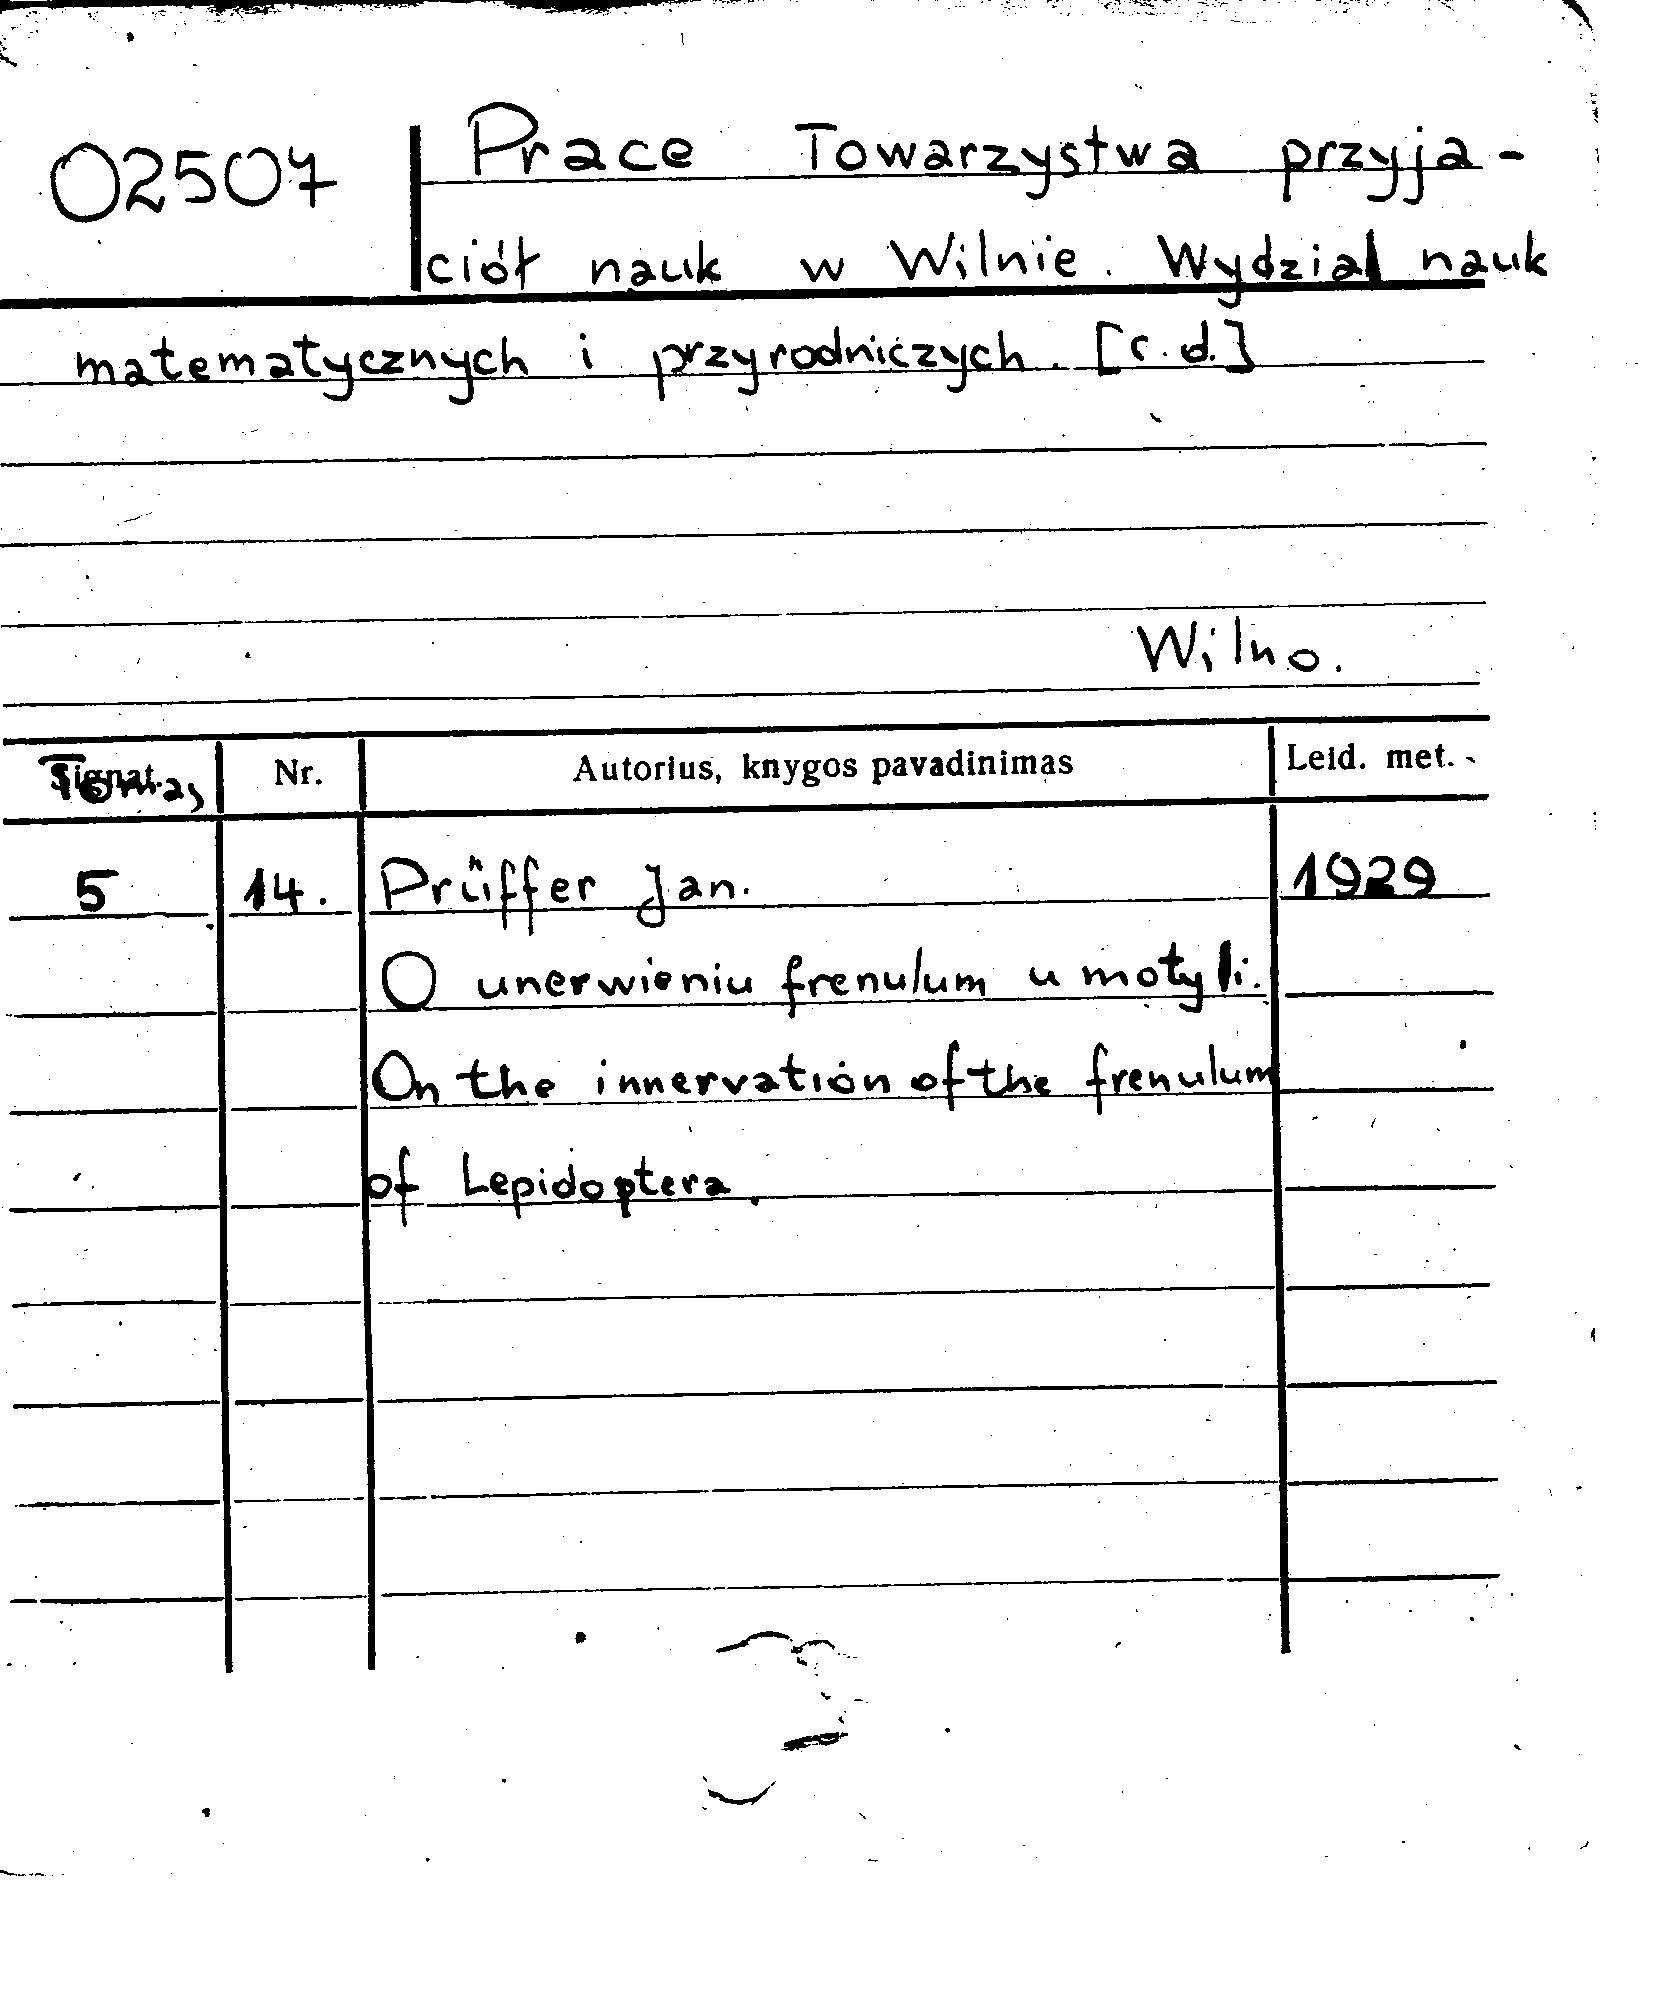 02507 Prace Towarzystwa przyja-
ciół nauk w Wilnie. Wydział nauk
matematycznych i przyrodniczych. [c.d.]
Wilno.
Tomas, Nr. Autorius, knygos pavadinimas Leid. met.
5 14. Prüffer Jan. 1929
O unerwieniu frenulum u motyli.
On the innervation of the frenulum
of Lepidoptera.